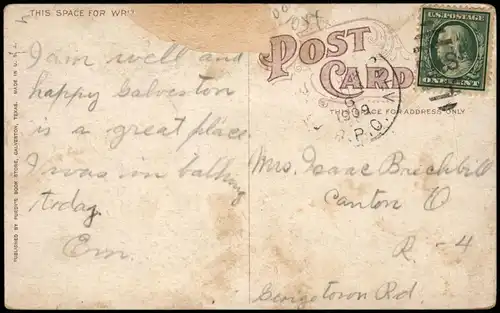 THIS SPACE FOR WRI
POST
CARD
U.S. POSTAGE
ONE CENT
1909
R.P.O.
THIS SPACE FOR ADDRESS ONLY
I am well and
happy Galveston
is a great place.
I was in bathing
today.
Em.
Mrs. Isaac Brechbill
Canton O
R - 4
Georgetown Rd.
PUBLISHED BY PURDY'S BOOK STORE, GALVESTON, TEXAS. MADE IN U. S. A.